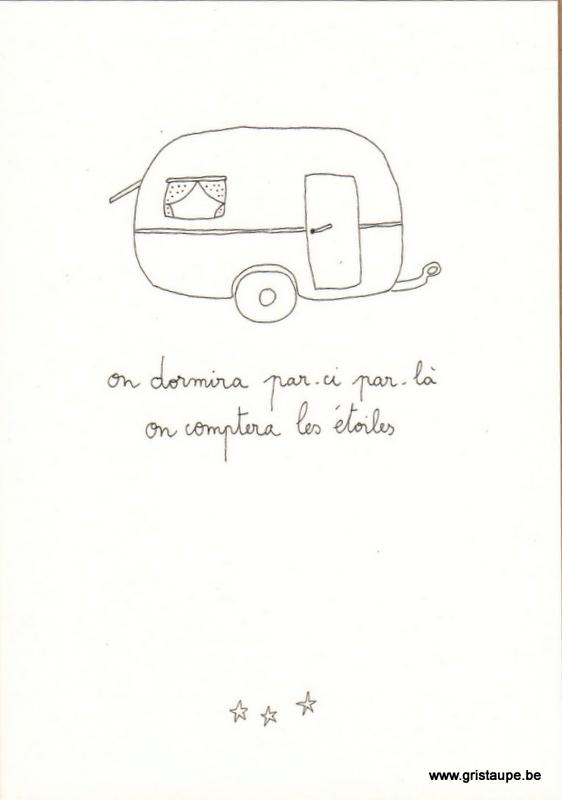 on dormira par-ci par-là
on comptera les étoiles
www.gristaupe.be